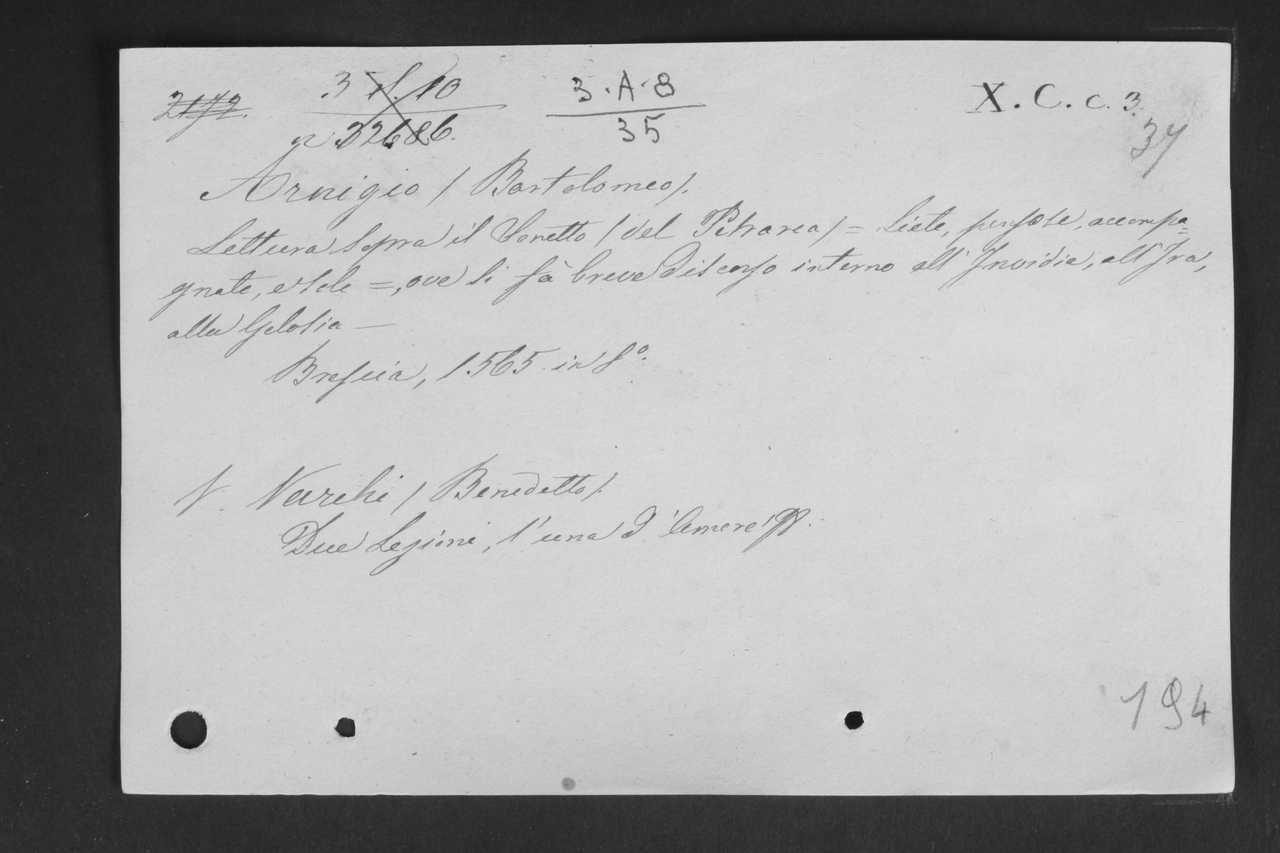 3·A·8
35
X. C. c. 3.
37
Arnigio (Bartolomeo).
Lettura sopra il Sonetto (del Petrarca) = Liete, pensose, accompa=
gnate, e sole =, ove si fà breve discorso intorno all'Invidia, all'Ira,
alla Gelosia —
Brescia, 1565. in 8º.
V. Varchi (Benedetto).
Due Lezioni, l'una d'Amore
194